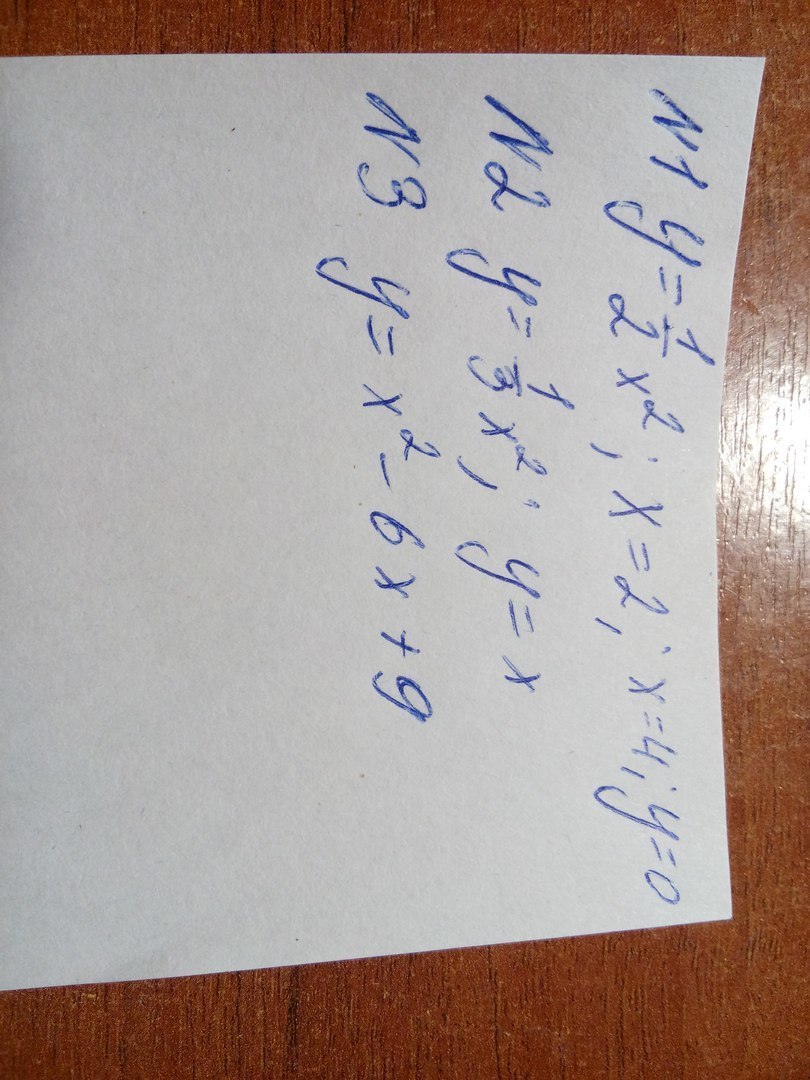 N1 y=1/2 x²; x=2; x=4; y=0
N2 y=1/3 x²; y=x
N3 y=x²-6x+9